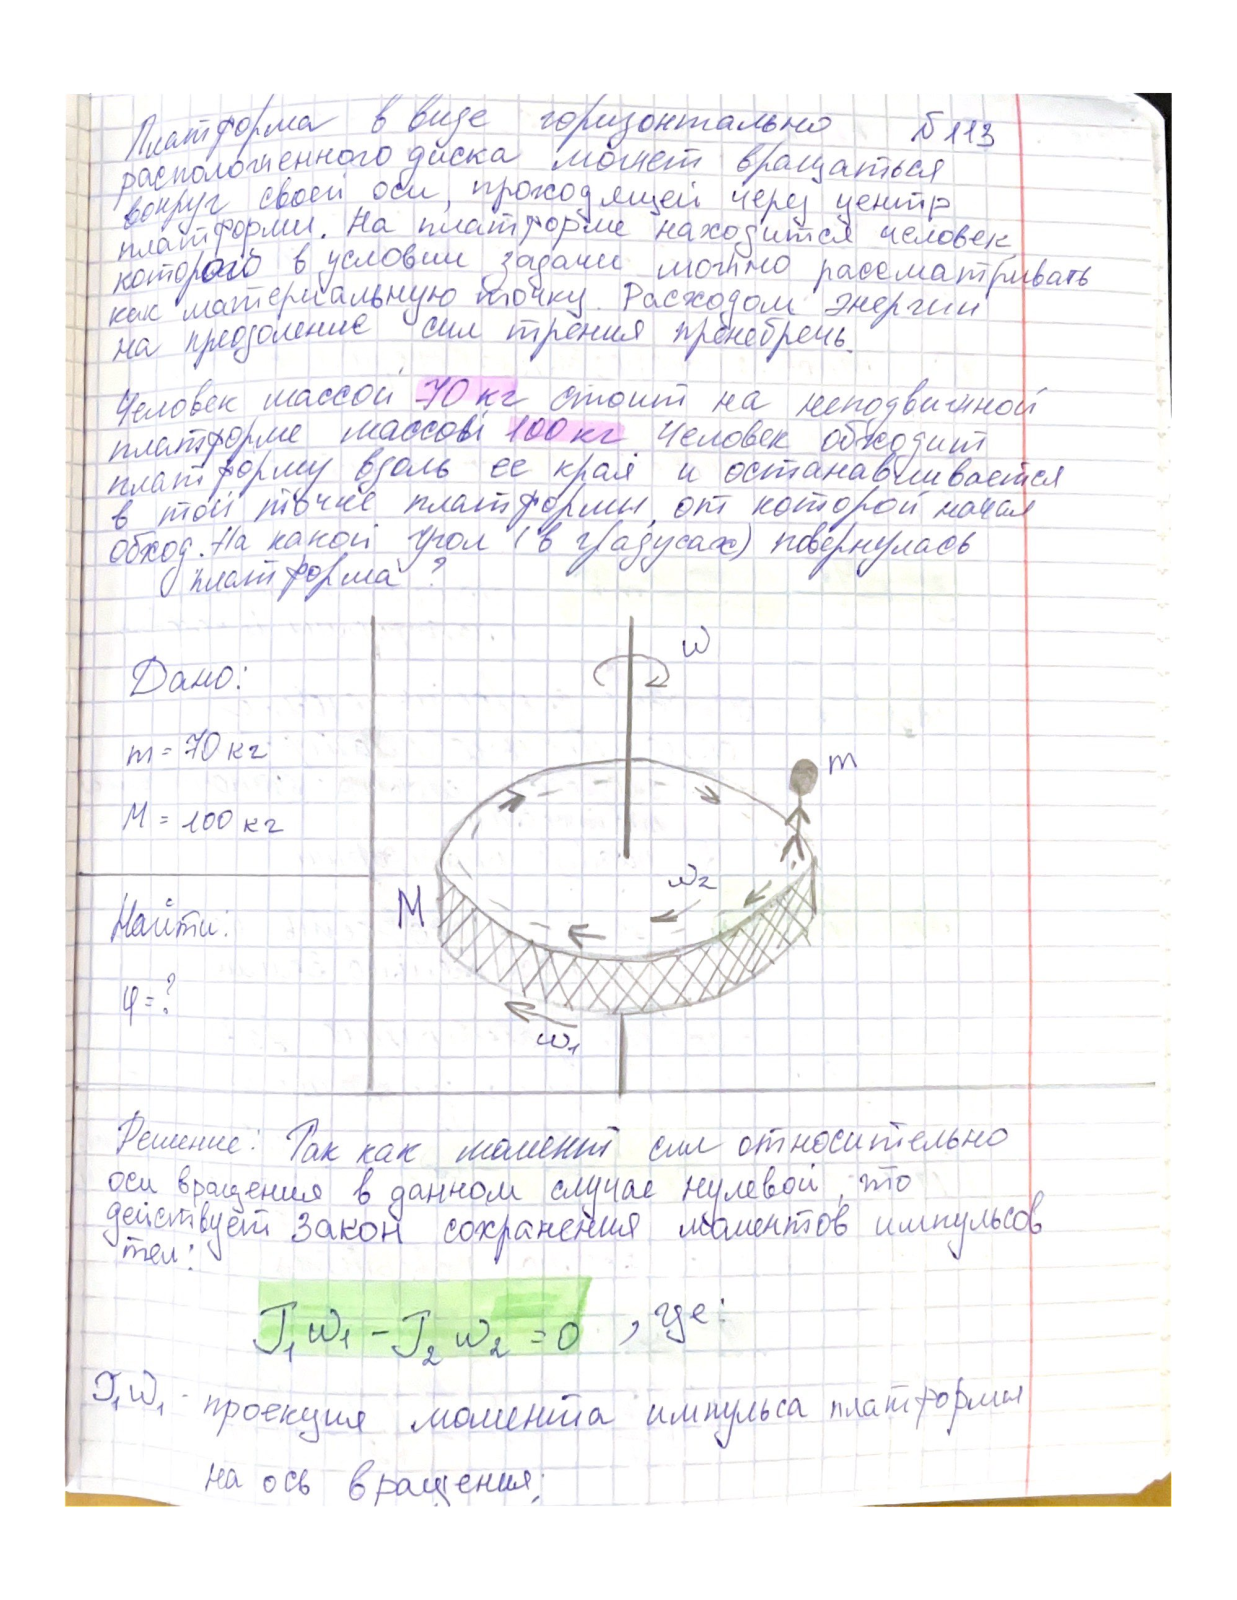 Платформа в виде горизонтально Б113
расположенного диска может вращаться
вокруг своей оси, проходящей через центр
платформы. На платформе находится человек
которого в условии задачи можно рассматривать
как материальную точку. Расходом энергии
на преодоление сил трения пренебречь.
Человек массой 70 кг стоит на неподвижной
платформе массой 100 кг Человек обходит
платформу вдоль ее края и останавливается
в той точке платформы, от которой начал
обход. На какой угол (в градусах) повернулась
платформа?
ω
Дано:
m = 70 кг
m
M = 100 кг
ω2
M
Найти:
φ = ?
ω1
Решение: Так как момент сил относительно
оси вращения в данном случае нулевой, то
действует закон сохранения моментов импульсов
тел:
J1ω1 - J2ω2 = 0, где:
J1ω1 - проекция момента импульса платформы
на ось вращения;